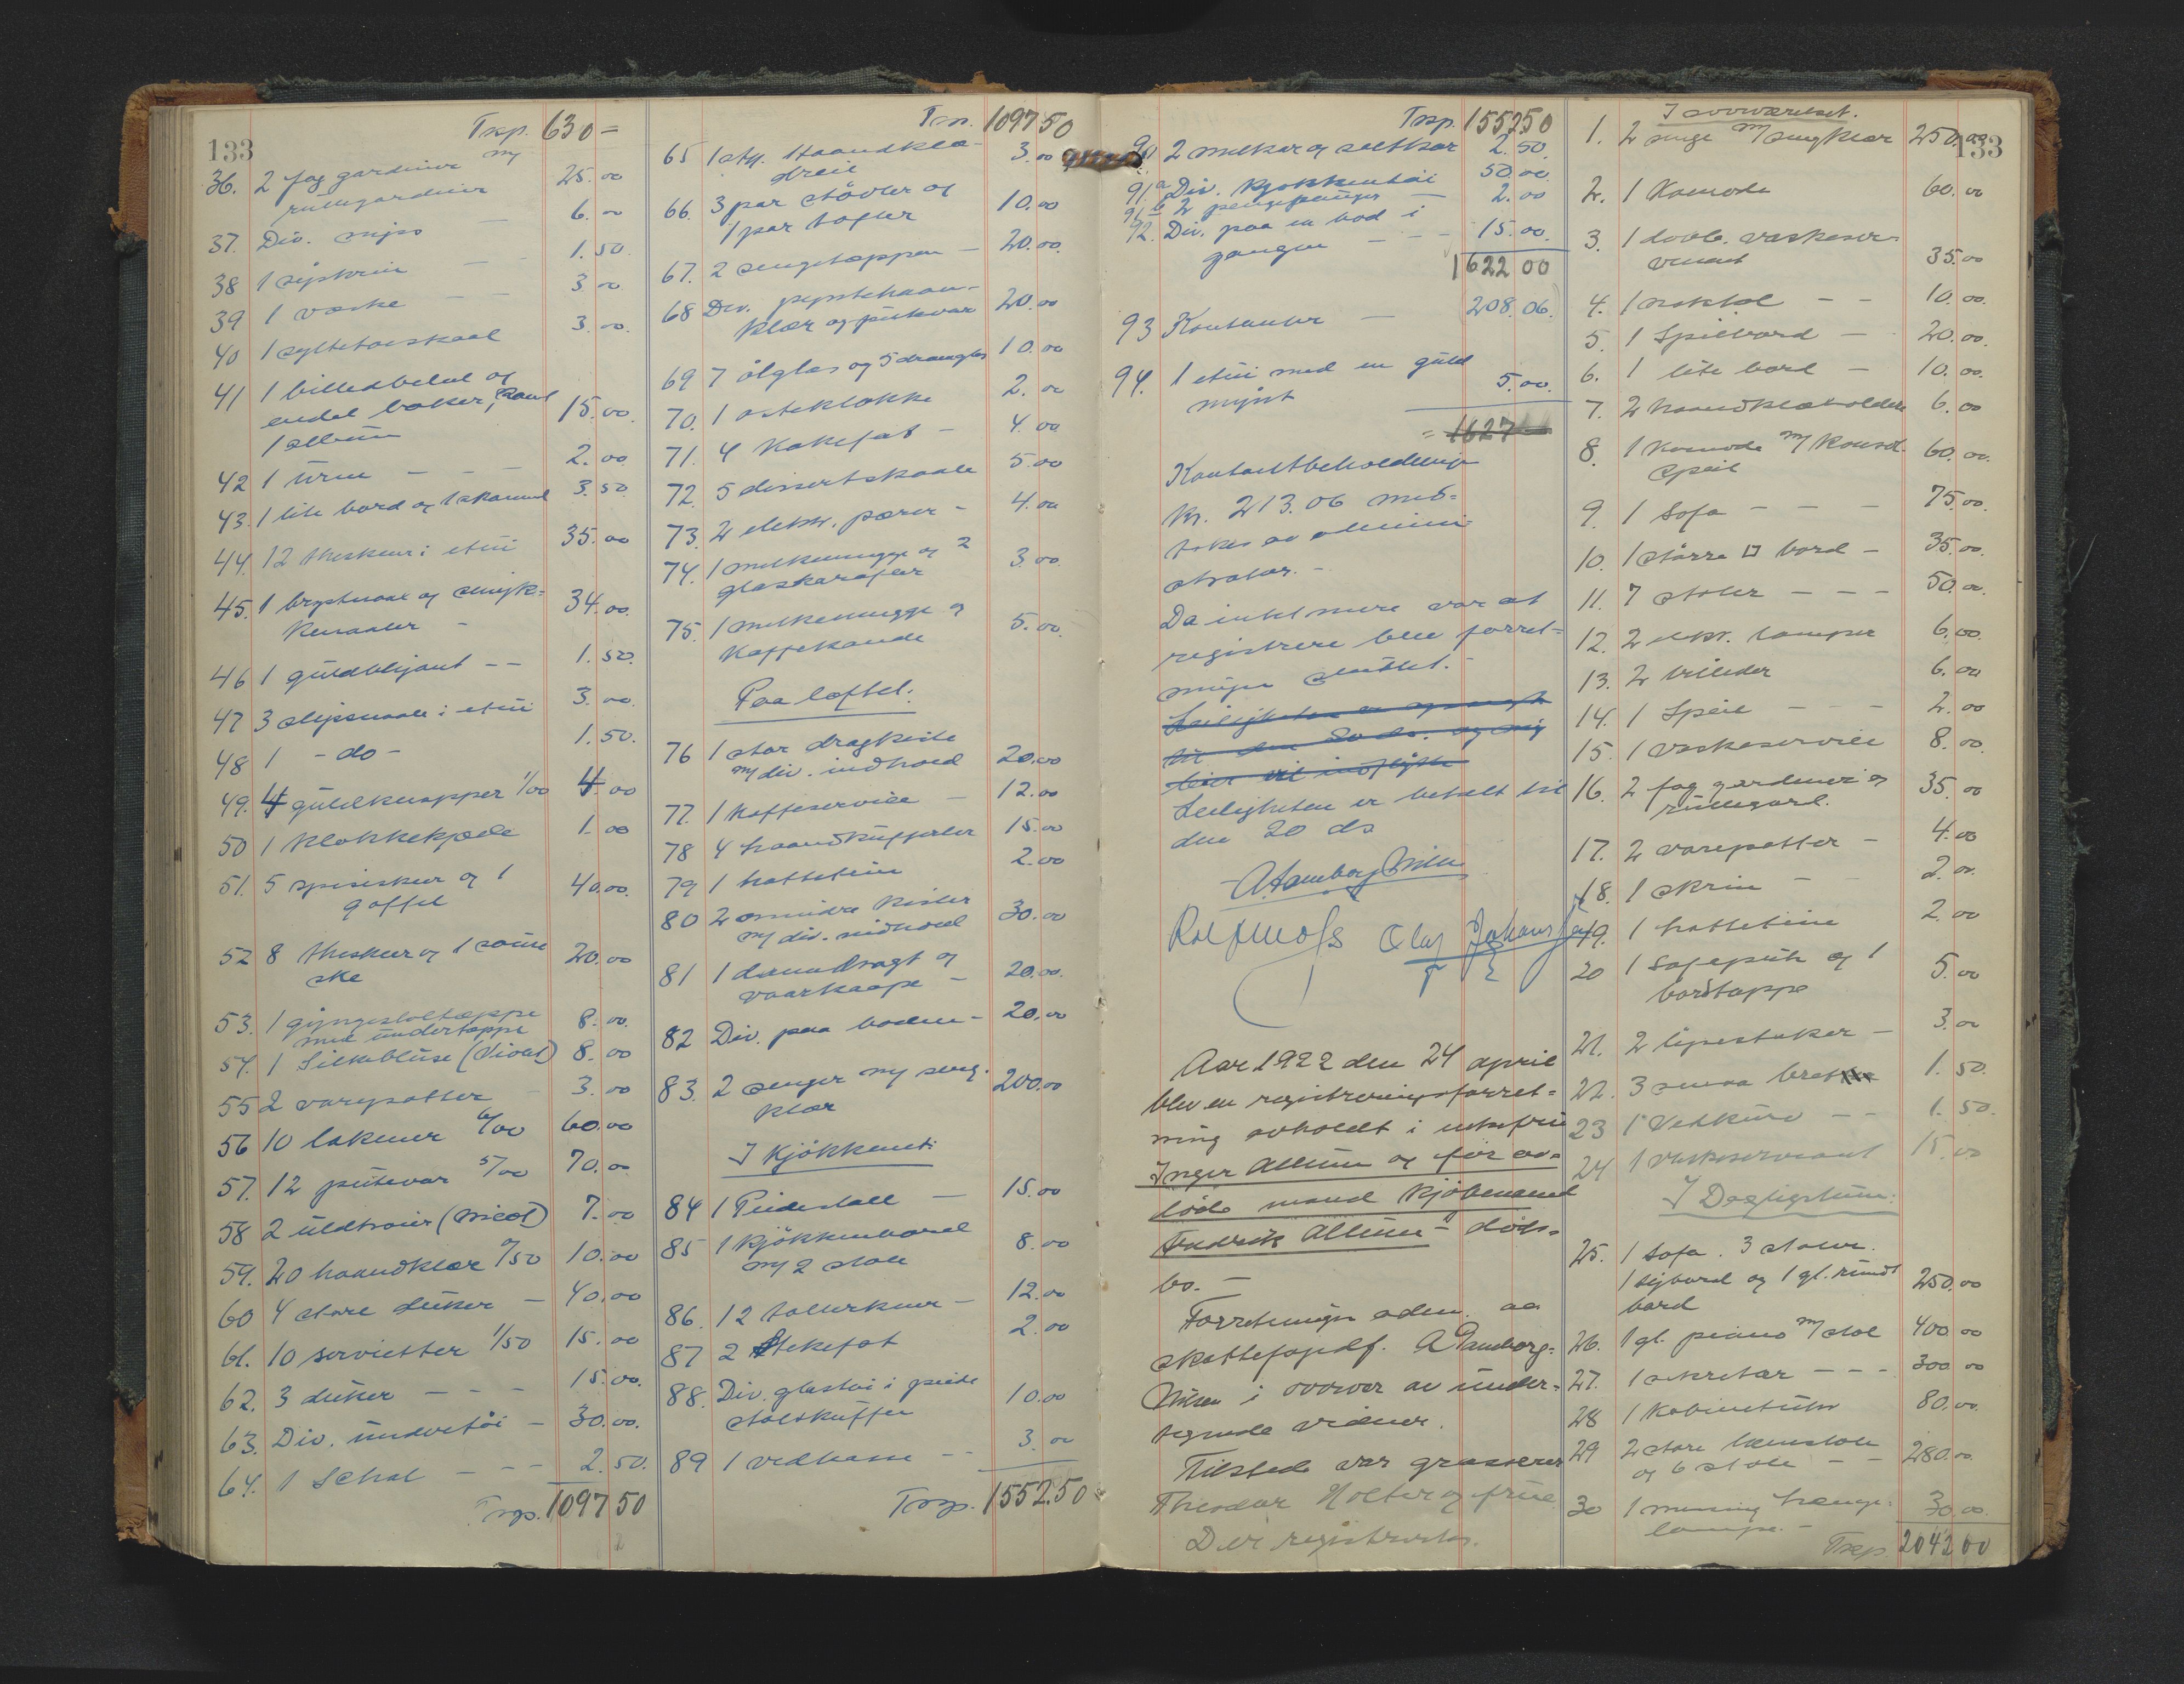 133
Trsp. 630 =
36. 2 fag gardiner m/
rullegardiner 25.00
37. Div. nips 6.00
38 1 syskrin - - 1.50
39 1 vaske - - 3.00
40 1 syltetøiskaal 3.00.
41 1 billedbibel og
endel bøker, samt
1 album 15.00.
42 1 urne - - - 2.00
43. 1 lite bord og 1 skammel 3.50
44. 12 theskeer i etui 35.00
45. 1 brystnaal og smyk-
kenaaler - 34.00.
46 1 guldblyant -- 1.50.
47 3 slipsnaale i etui 3.00.
48 1 - do - 1.50.
49. 4 guldknapper 1/00 4.00
50 1 klokkekjæde 1.00
51. 5 spiseskeer og 1
gaffel 40.00.
52 8 theskeer og 1 sause
ske 20.00
53. 1 gyngestoltæppe
med undertæppe 8.00.
54. 1 Silkebluse (Violet) 8.00
55 2 varepotter - 3.00
56 10 lakener 6/00 60.00
57. 12 putevar 5/00 70.00
58 2 uldtrøier (Nicol) 7.00
59. 20 haandklær 0/50 10.00
60 4 store duker - 40.00
61. 10 servietter 1/50 15.00
62. 3 duker - - - 15.00.
63. Div. undertøi - 30.00.
64. 1 Schal - - - 2.50.
Trsp. 1097 50
Trsp. 1097 50
65 1 stg. Haandklæ-
dreil 3.00
66. 3 par støvler og
1 par tøfler 10.00
67. 2 sengetæpper - 20.00.
68 Div. pyntehaand-
klær og putevar 20.00
69 7 ølglas og 5 dramglas 10.00
70. 1 osteklokke 2.00
71. 4 Kakefat - 4.00
72. 5 dessertskaale 5.00
73. 2 elektr. pærer - 4.00
74. 1 melkemugge og 2
glaskarafler 3.00.
75. 1 melkemugge og
Kaffekande 5.00.
Paa loftet:
76 1 stor dragkiste
m/ div. indhold 20.00
77. 1 kaffeservice - 12.00
78 4 haandkufferter 15.00
79 1 hatteteine 2.00
80 2 mindre kister
m/ div. indhold 30.00
81 1 damedragt og
vaarkaape - 20.00.
82 Div. paa boden - 20.00
83. 2 senger m/ seng-
klær 200.00
I Kjøkkenet:
84 1 Pidestall - 15.00
85 1 kjøkkenbord
m/ 2 stole 8.00
86. 12 tallerkner - 12.00
87 2 Stekefat 2.00
88. Div. glastøi i
skuffen 10.00
89 1 vedkasse -- 3.00
Trsp. 1552.50
Trsp. 1552.50
90 2 melkar og saltkar 2.50.
91a Div. Kjøkkentøi 50.00.
91b 2 pengepunger - 2.00
92. Div. paa en bod i
gangen - - - 15.00.
1622 00
93 Kontanter - 208.06.
94. 1 etui med en guld
mynt 5.00.
= 1627
Kontantbeholdningen
kr. 213.06 mod-
tokes av admini-
strator. -
Da intet mere var at
registrere blev forret-
ningen sluttet. -
Leiligheten er opsagt
til den
leier vil indflytte
Leiligheten er betalt til
den 20 ds
A. Hamborg Nilsen
Olaf Johansen
Aar 1922 den 24 april
blev en registreringsforret-
ning avholdt i enkefrue
Inger Allum og før av-
døde mand kjøbmand
Fredrik Allum's døds-
bo. -
Forretningen adm. av
skattefogdf. A Hamborg-
Nilsen i overvær av under-
tegnede vidner.
Tilstede var grosserer
Theodor Holter og frue
Der registrertes.
I soveværelset.
133
1. 2 senge m/ sengklær 250.00
2. 1 Komode 60.00
3. 1 dobb. vaskeser-
vant 35.00
4. 1 noktbl - - 10.00.
5. 1 Spillebord - 20.00.
6. 1 lite bord - 10.00.
7. 2 haandklæholdere 6.00
8. 1 Komode m/ Konsol-
speil 60.00.
9. 1 Sofa - - - 75.00.
10. 1 større □ bord - 35.00.
11. 7 stoler - - - 50.00.
12. 2 elktr. lamper 6.00.
13. 2 billeder 6.00
14. 1 Speil - - - 2.00
15. 1 vaskeservice 8.00.
16. 2 fag gardiner og
rullegard. 35.00
17. 2 varepotter - 4.00
18. 1 skrin - - 2.00.
19. 1 hatteteine 2.00
20 1 Sofapute og 1
bordtæppe 5.00
21. 2 lysestaker - 3.00
22. 3 smaa bretter 1.50.
23 1 Vedkurv - - 1.50.
24 1 vaskeservant 15.00
I Dagligstuen:
25. 1 Sofa. 3 stoler.
1 sybord og 1 gl. rundt
bord 250.00
26. 1 gl. piano m/ stol 400.00
27. 1 sekretær - - - 300.00
28 1 Kabinetuhr 80.00.
29 2 store lænestole
og 6 stole - - 280.00.
30 1 messing hænge-
lampe. - 30.00.
Trsp 2042 00